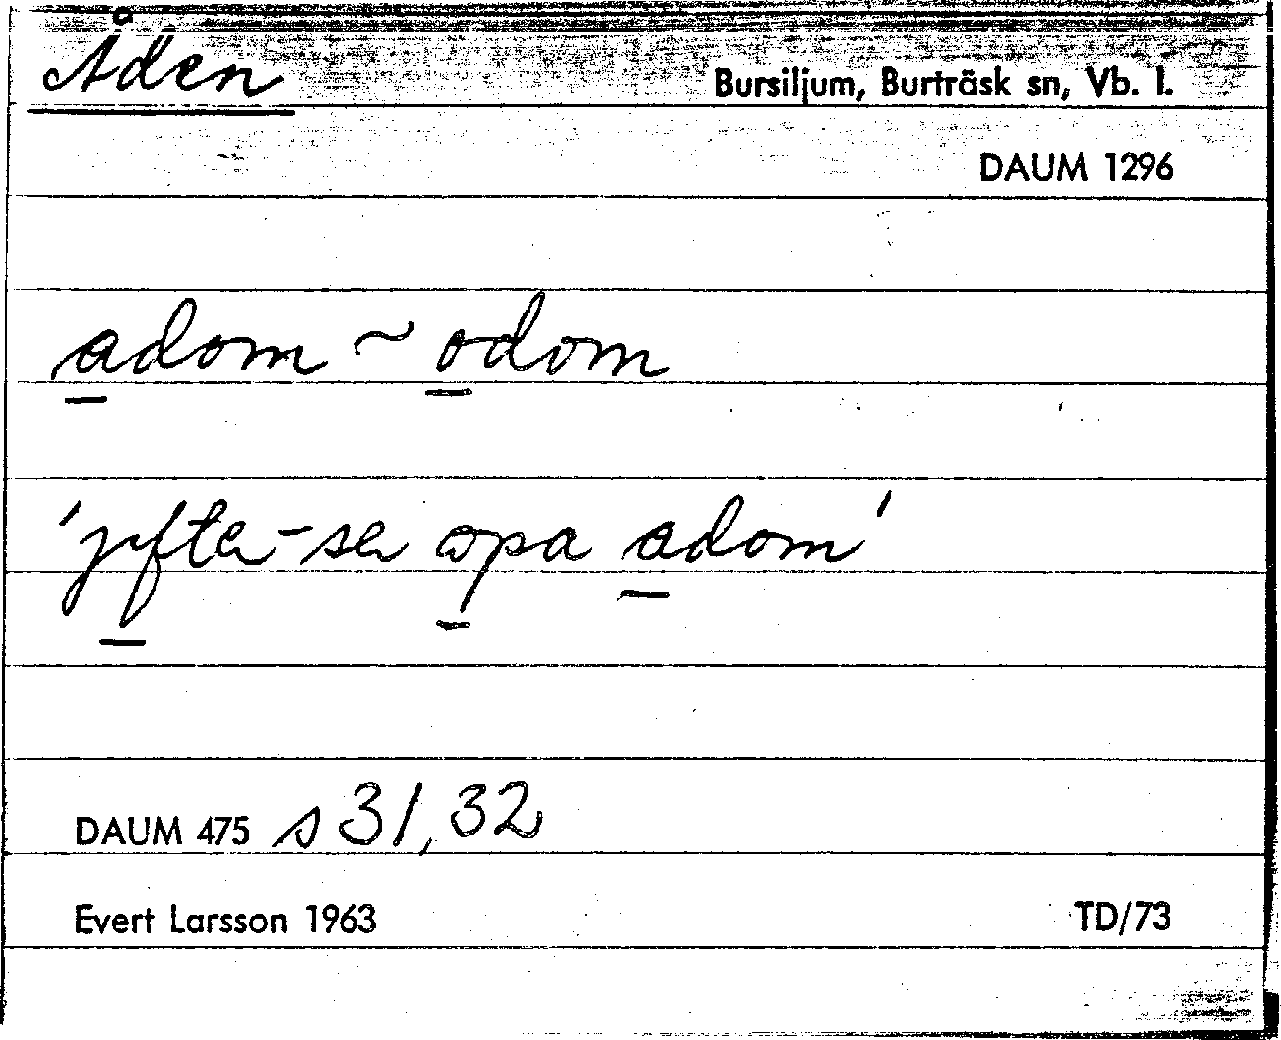 Åden
Bursiljum, Burträsk sn, Vb. l.
DAUM 1296
adom ~ odom
'yfte-se opa adom'
DAUM 475 s 31, 32
Evert Larsson 1963 TD/73